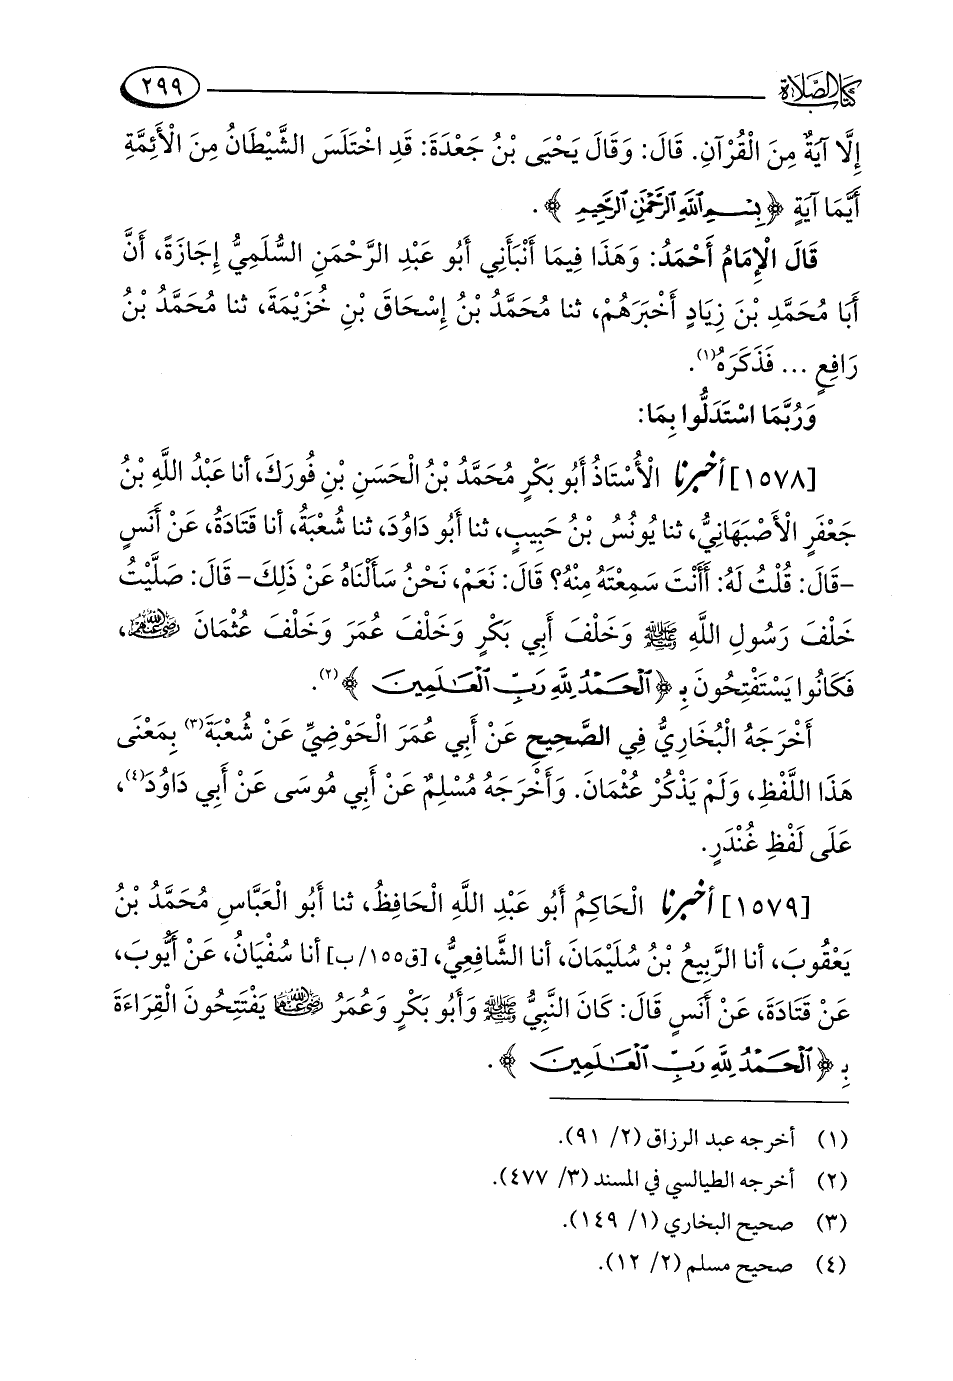 كتاب الصلاة ٢٩٩
إِلَّا آيَةٌ مِنَ الْقُرْآنِ. قَالَ: وَقَالَ يَحْيَى بْنُ جَعْدَةَ: قَدِ اخْتَلَسَ الشَّيْطَانُ مِنَ الْأَئِمَّةِ
أَيَّمَا آيَةٍ ﴿بِسْمِ اللَّهِ الرَّحْمَٰنِ الرَّحِيمِ﴾.
قَالَ الْإِمَامُ أَحْمَدُ: وَهَذَا فِيمَا أَنْبَأَنِي أَبُو عَبْدِ الرَّحْمَنِ السُّلَمِيُّ إِجَازَةً، أَنَّ
أَبَا مُحَمَّدِ بْنَ زِيَادٍ أَخْبَرَهُمْ، ثنا مُحَمَّدُ بْنُ إِسْحَاقَ بْنِ خُزَيْمَةَ، ثنا مُحَمَّدُ بْنُ
رَافِعٍ ... فَذَكَرَهُ(١).
وَرُبَّمَا اسْتَدَلُّوا بِمَا:
[١٥٧٨] أخبرنا الْأُسْتَاذُ أَبُو بَكْرٍ مُحَمَّدُ بْنُ الْحَسَنِ بْنِ فُورَكَ، أنا عَبْدُ اللَّهِ بْنُ
جَعْفَرٍ الْأَصْبَهَانِيُّ، ثنا يُونُسُ بْنُ حَبِيبٍ، ثنا أَبُو دَاوُدَ، ثنا شُعْبَةُ، أنا قَتَادَةُ، عَنْ أَنَسٍ
-قَالَ: قُلْتُ لَهُ: أَأَنْتَ سَمِعْتَهُ مِنْهُ؟ قَالَ: نَعَمْ، نَحْنُ سَأَلْنَاهُ عَنْ ذَلِكَ- قَالَ: صَلَّيْتُ
خَلْفَ رَسُولِ اللَّهِ ﷺ وَخَلْفَ أَبِي بَكْرٍ وَخَلْفَ عُمَرَ وَخَلْفَ عُثْمَانَ رضي الله عنهم،
فَكَانُوا يَسْتَفْتِحُونَ بِـ ﴿الْحَمْدُ لِلَّهِ رَبِّ الْعَالَمِينَ﴾(٢).
أَخْرَجَهُ الْبُخَارِيُّ فِي الصَّحِيحِ عَنْ أَبِي عُمَرَ الْحَوْضِيِّ عَنْ شُعْبَةَ(٣) بِمَعْنَى
هَذَا اللَّفْظِ، وَلَمْ يَذْكُرْ عُثْمَانَ. وَأَخْرَجَهُ مُسْلِمٌ عَنْ أَبِي مُوسَى عَنْ أَبِي دَاوُدَ(٤)،
عَلَى لَفْظِ غُنْدَرٍ.
[١٥٧٩] أخبرنا الْحَاكِمُ أَبُو عَبْدِ اللَّهِ الْحَافِظُ، ثنا أَبُو الْعَبَّاسِ مُحَمَّدُ بْنُ
يَعْقُوبَ، أنا الرَّبِيعُ بْنُ سُلَيْمَانَ، أنا الشَّافِعِيُّ، [ق١٥٥/ب] أنا سُفْيَانُ، عَنْ أَيُّوبَ،
عَنْ قَتَادَةَ، عَنْ أَنَسٍ قَالَ: كَانَ النَّبِيُّ ﷺ وَأَبُو بَكْرٍ وَعُمَرُ رضي الله عنهما يَفْتَتِحُونَ الْقِرَاءَةَ
بِـ ﴿الْحَمْدُ لِلَّهِ رَبِّ الْعَالَمِينَ﴾.
(١) أخرجه عبد الرزاق (٢/ ٩١).
(٢) أخرجه الطيالسي في المسند (٣/ ٤٧٧).
(٣) صحيح البخاري (١/ ١٤٩).
(٤) صحيح مسلم (٢/ ١٢).